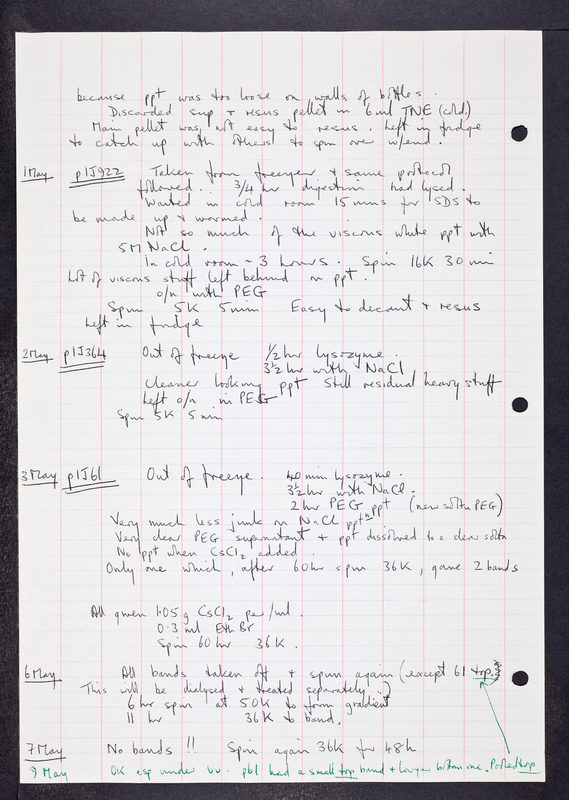 because ppt was too loose on walls of bottles.
Discarded sup + resus pellet in 6ml TNE (cold)
Main pellet was not easy to resus. Left in fridge
to catch up with others to spin over w/end.
1 May pIJ922 Taken from freezer + same protocol
followed. 3/4 hr digestion had lysed.
Waited in cold room 15 mins for SDS to
be made up + warmed.
Not so much of the viscous white ppt with
5M NaCl.
In cold room ~ 3 hours. Spin 16K 30 min
Lot of viscous stuff left behind on ppt.
o/n with PEG
Spun 5K 5min Easy to decant + resus
Left in fridge
2 May pIJ364 Out of freeze 1/2 hr lysozyme.
3½ hr with NaCl
Cleaner looking ppt Still residual heavy stuff
Left o/n in PEG
Spin 5K 5 min
3 May pIJ61 Out of freeze. 40 min lysozyme.
3½ hr with NaCl.
2 hr PEG ppt (new soltn PEG)
Very much less junk on NaCl pptn
Very clear PEG supernatant + ppt dissolved to a clear soltn
No ppt when CsCl2 added.
Only one which, after 60 hr spin 36K, gave 2 bands
All given 1.05 g CsCl2 per/ml.
0.3 ml Eth Br
Spin 60 hr 36K.
6 May All bands taken off + spun again (except 61 top.
This will be dialysed + treated separately.)
6 hr spin at 50K to form gradient
11 hr 36K to band.
7 May No bands!! Spin again 36K for 48h
9 May OK esp under uv. p61 had a small top band + larger bottom one. Pooled top